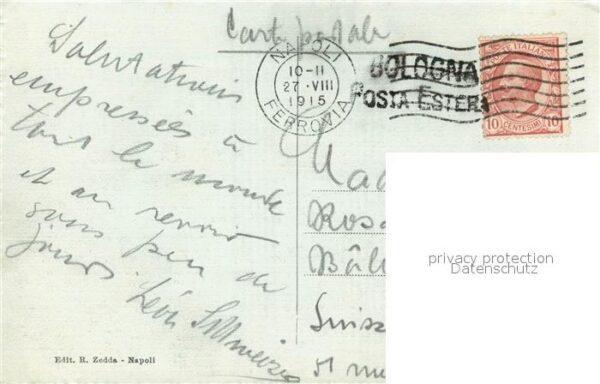 Carte postale
NAPOLI
10-11
27·VIII
1915
FERROVIA
BOLOGNA
POSTA ESTERA
POSTE ITALIANE
10 CENTESIMI 10
Salutations
empressées à
tout le monde
et au revoir
sous peu de
jours.
Léon
Mad
Rosa
Bâl
Suiss
51
privacy protection
Datenschutz
Edit. R. Zedda - Napoli